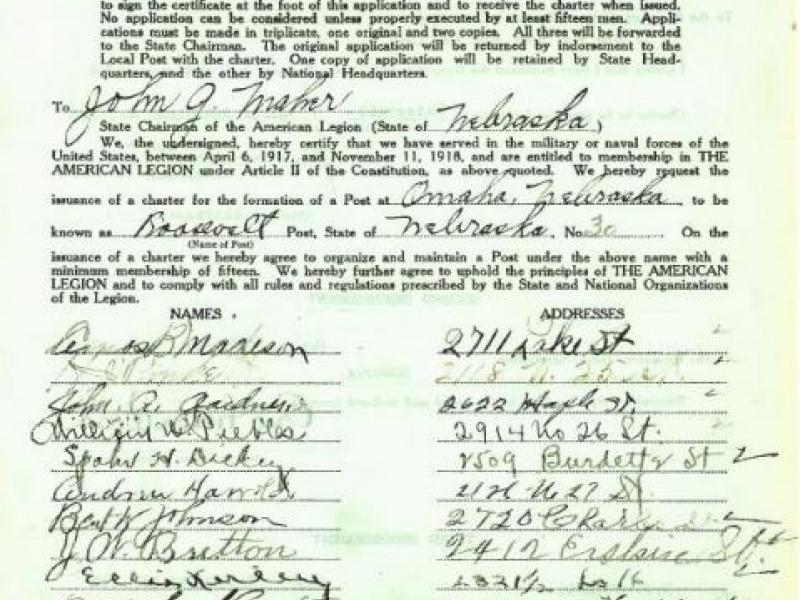 to sign the certificate at the foot of this application and to receive the charter when issued.
No application can be considered unless properly executed by at least fifteen men. Appli-
cations must be made in triplicate, one original and two copies. All three will be forwarded
to the State Chairman. The original application will be returned by indorsement to the
Local Post with the charter. One copy of application will be retained by State Head-
quarters, and the other by National Headquarters.
To John G. Maher
State Chairman of the American Legion (State of Nebraska)
We, the undersigned, hereby certify that we have served in the military or naval forces of the
United States, between April 6, 1917, and November 11, 1918, and are entitled to membership in THE
AMERICAN LEGION under Article II of the Constitution, as above quoted. We hereby request the
issuance of a charter for the formation of a Post at Omaha, Nebraska, to be
known as Roosevelt Post, State of Nebraska, No. 30 On the
(Name of Post)
issuance of a charter we hereby agree to organize and maintain a Post under the above name with a
minimum membership of fifteen. We hereby further agree to uphold the principles of THE AMERICAN
LEGION and to comply with all rules and regulations prescribed by the State and National Organizations
of the Legion.
NAMES. ADDRESSES
Amos B. Madison 2711 Lake St
2118 N. 25 St.
John A. Gardner 2622 Maple St.
William W. Peebles 2914 No 26 St.
H. Dickey 2509 Burdette St
Andrew 27 St.
Bert Johnson 2720 Charles St
J. W. Britton 2412 Erskine St.
16